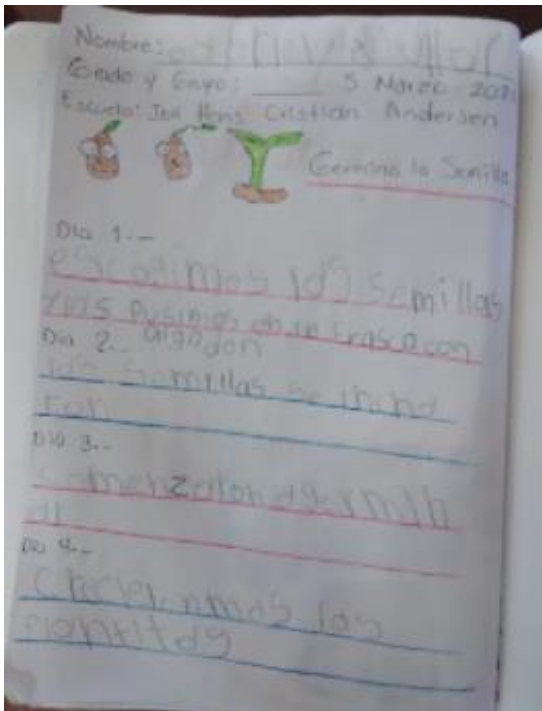 Nombre:
Grado y Grupo: ____ 5 Marzo
Escuela: Cristian Andersen
Germina la Semilla
Dia 1.--
escogimos las semillas
y las pusimos en un frasco con
algodon
Dia 2.-
las semillas se incha
ron
Dia 3.-
comenzaron a germin
ar
Dia 4.-
crecieron mas las
plantitas